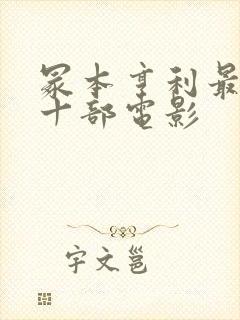 冢本亨利最
十部电影
宇文邕